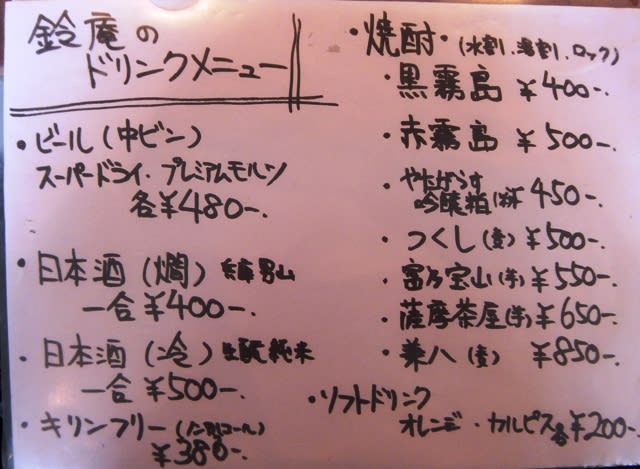 鈴庵の
ドリンクメニュー
・ビール(中ビン)
スーパードライ・プレミアムモルツ
各¥480-.
・日本酒(燗) 男山
一合¥400-.
・日本酒(冷) 生酛純米
一合¥500-.
・キリンフリー(ノンアルコール)
¥380-.
・焼酎・(水割、湯割、ロック)
・黒霧島 ¥400-.
・赤霧島 ¥500-.
・やたがらす
吟醸粕 450-.
・つくし(麦)¥500-.
・富乃宝山(芋)¥550-.
・薩摩茶屋(芋)¥650-.
・兼八(麦) ¥850-.
・ソフトドリンク
オレンジ・カルピス各¥200-.